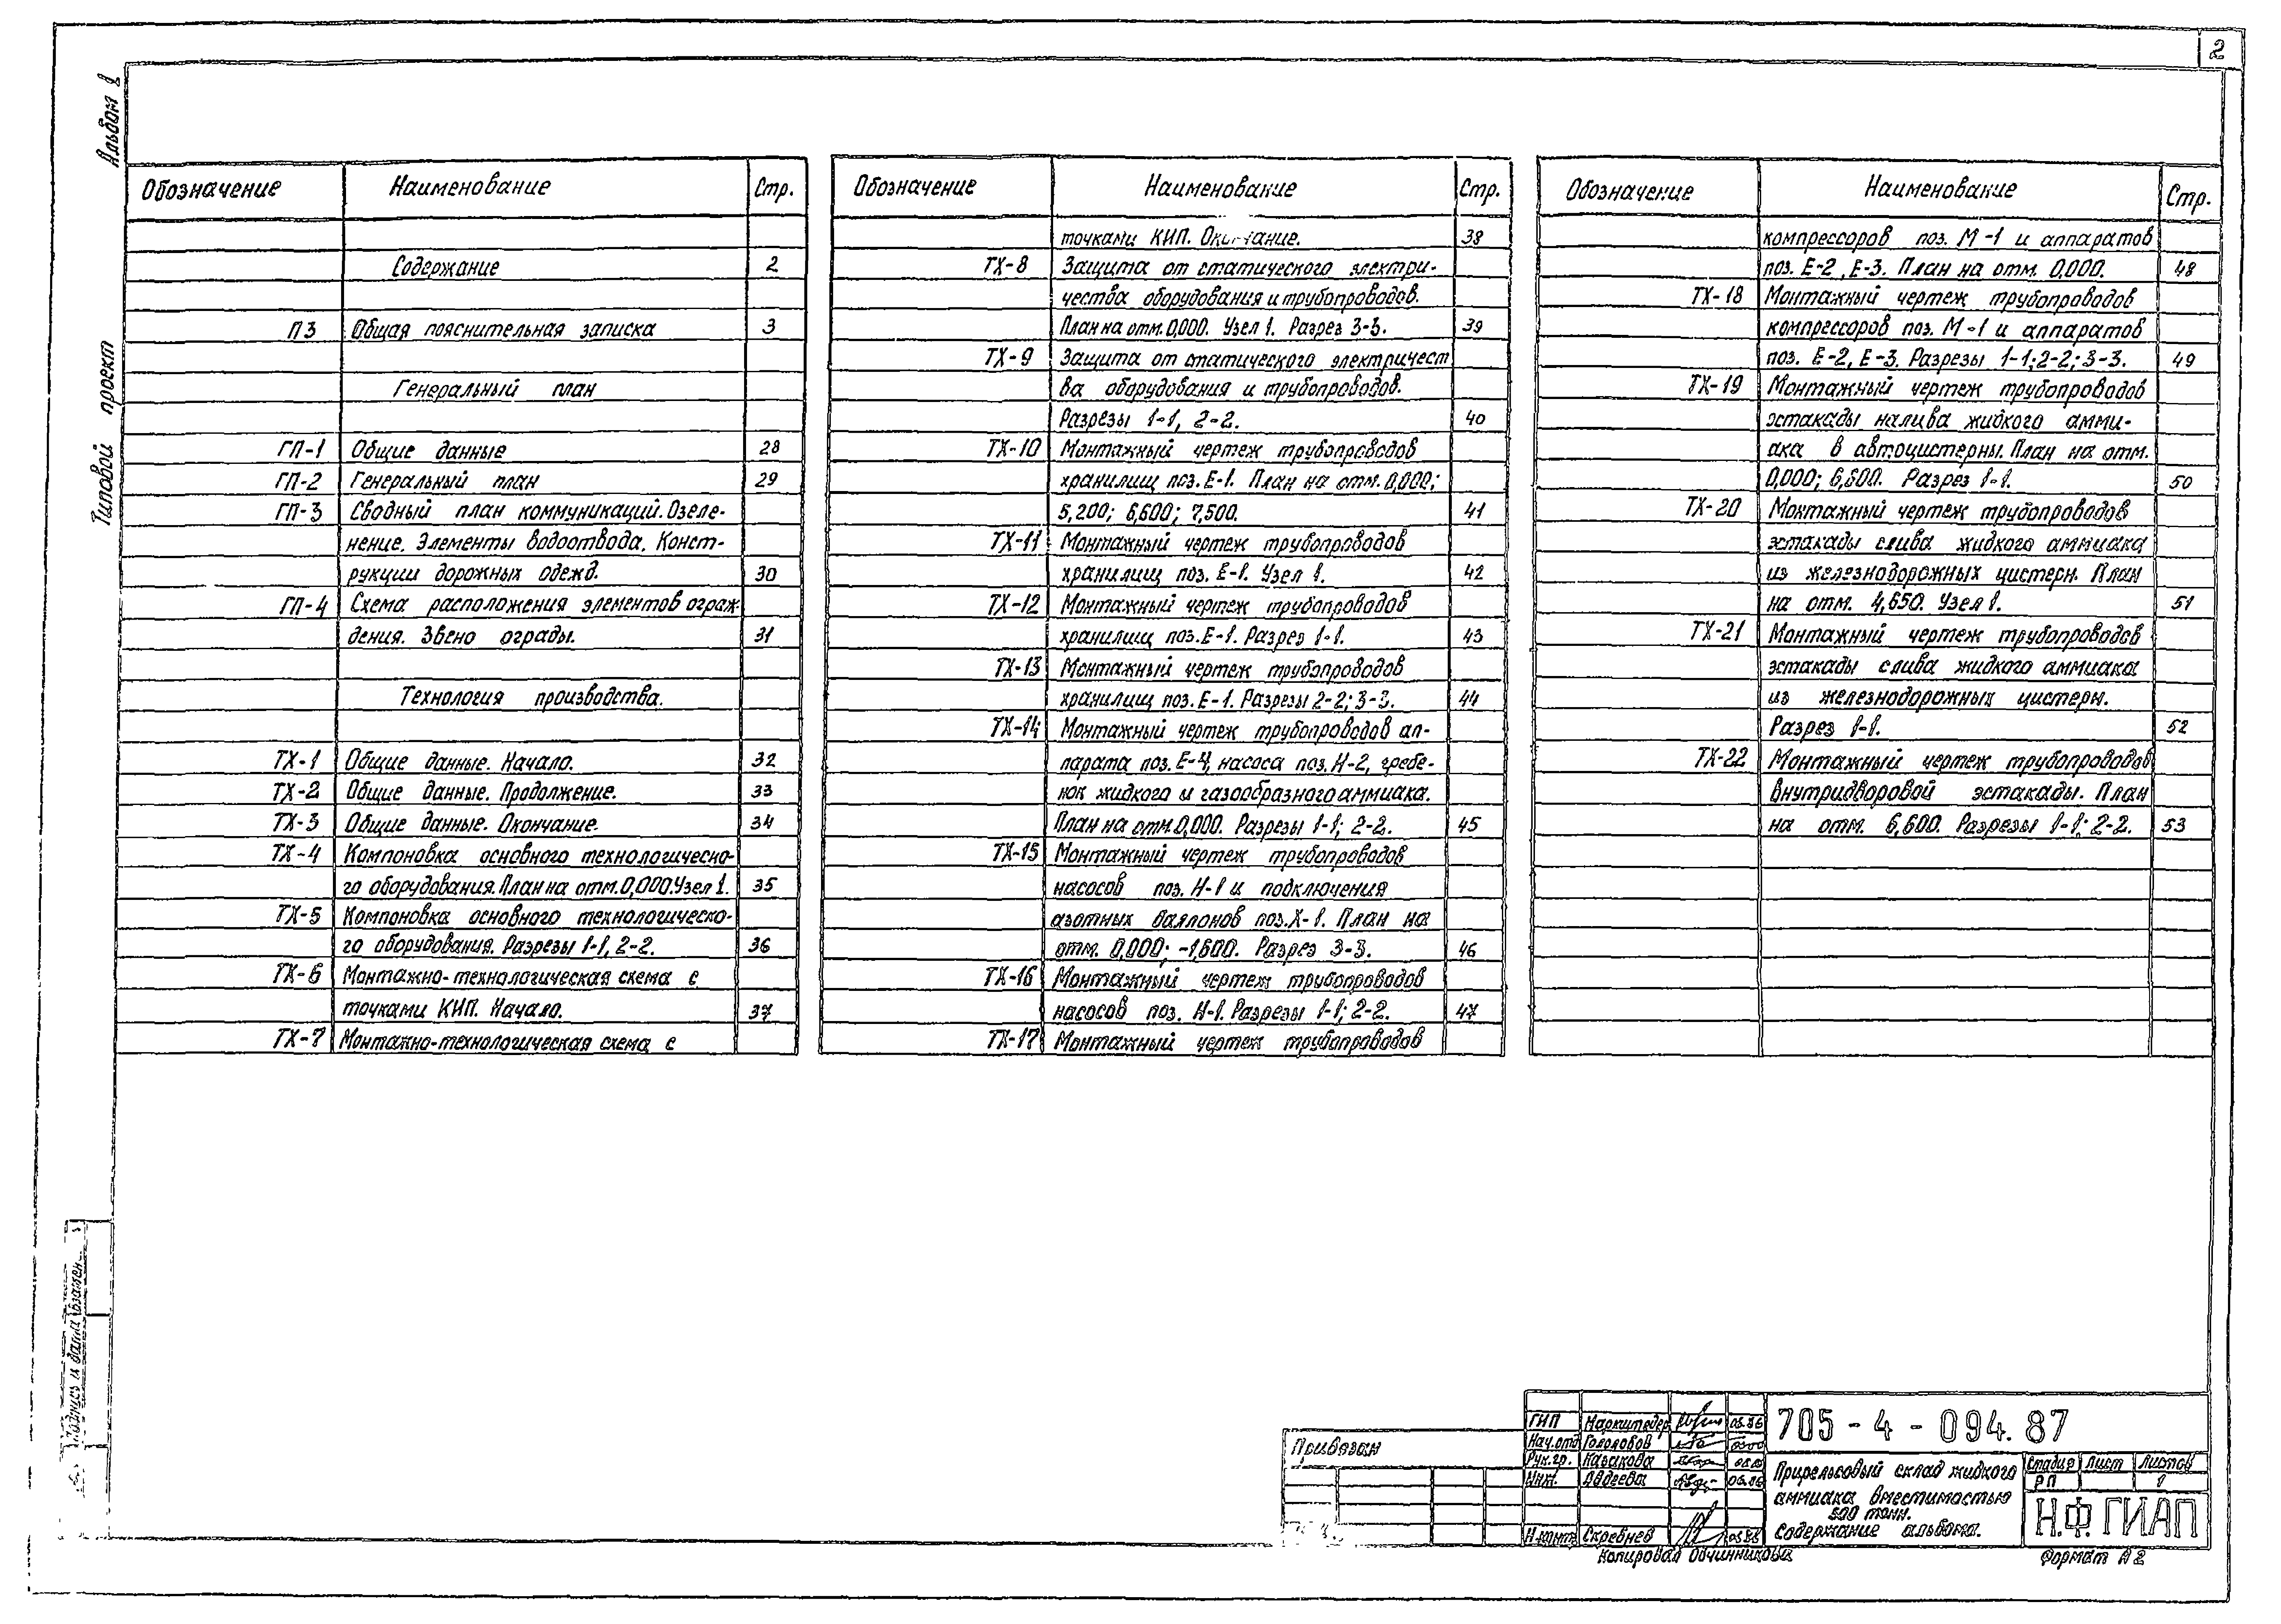 2
Альбом 1
Типовой проект
Обозначение Наименование Стр.
Содержание 2
ПЗ Общая пояснительная записка 3
Генеральный план
ГП-1 Общие данные 28
ГП-2 Генеральный план 29
ГП-3 Сводный план коммуникаций. Озеле-
нение. Элементы водоотвода. Конст-
рукции дорожных одежд. 30
ГП-4 Схема расположения элементов ограж-
дения. Звено ограды. 31
Технология производства.
ТХ-1 Общие данные. Начало. 32
ТХ-2 Общие данные. Продолжение. 33
ТХ-3 Общие данные. Окончание. 34
ТХ-4 Компоновка основного технологическо-
го оборудования. План на отм. 0,000. Узел 1. 35
ТХ-5 Компоновка основного технологическо-
го оборудования. Разрезы 1-1, 2-2. 36
ТХ-6 Монтажно-технологическая схема с
точками КИП. Начало. 37
ТХ-7 Монтажно-технологическая схема с
Обозначение Наименование Стр.
точками КИП. Окончание. 38
ТХ-8 Защита от статического электри-
чества оборудования и трубопроводов.
План на отм. 0,000. Узел 1. Разрез 3-3. 39
ТХ-9 Защита от статического электричест
ва оборудования и трубопроводов.
Разрезы 1-1, 2-2. 40
ТХ-10 Монтажный чертеж трубопроводов
хранилищ поз. Е-1. План на отм. 0,000;
5,200; 6,600; 7,500. 41
ТХ-11 Монтажный чертеж трубопроводов
хранилищ поз. Е-1. Узел 1. 42
ТХ-12 Монтажный чертеж трубопроводов
хранилищ поз. Е-1. Разрез 1-1. 43
ТХ-13 Монтажный чертеж трубопроводов
хранилищ поз. Е-1. Разрезы 2-2; 3-3. 44
ТХ-14 Монтажный чертеж трубопроводов ап-
парата поз. Е-4, насоса поз. Н-2, гребе-
нок жидкого и газообразного аммиака.
План на отм. 0,000. Разрезы 1-1; 2-2. 45
ТХ-15 Монтажный чертеж трубопроводов
насосов поз. Н-1 и подключения
азотных баллонов поз. Х-1. План на
отм. 0,000; -1,600. Разрез 3-3. 46
ТХ-16 Монтажный чертеж трубопроводов
насосов поз. Н-1. Разрезы 1-1; 2-2. 47
ТХ-17 Монтажный чертеж трубопроводов
Обозначение Наименование Стр.
компрессоров поз. М-1 и аппаратов
поз. Е-2, Е-3. План на отм. 0,000. 48
ТХ-18 Монтажный чертеж трубопроводов
компрессоров поз. М-1 и аппаратов
поз. Е-2, Е-3. Разрезы 1-1; 2-2; 3-3. 49
ТХ-19 Монтажный чертеж трубопроводов
эстакады налива жидкого амми-
ака в автоцистерны. План на отм.
0,000; 6,600. Разрез 1-1. 50
ТХ-20 Монтажный чертеж трубопроводов
эстакады слива жидкого аммиака
из железнодорожных цистерн. План
на отм. 4,650. Узел 1. 51
ТХ-21 Монтажный чертеж трубопроводов
эстакады слива жидкого аммиака
из железнодорожных цистерн.
Разрез 1-1. 52
ТХ-22 Монтажный чертеж трубопроводов
внутридворовой эстакады. План
на отм. 6,600. Разрезы 1-1; 2-2. 53
Подпись и дата
Взамен
Привязан
ГИП Маркштедер 05.86
Нач.отд Гололобов
Рук.гр. Казакова
Инж. Авдеева 06.86
Н.контр Скребнев 05.86
705-4-094.87
Прирельсовый склад жидкого
аммиака вместимостью
500 тонн.
Содержание альбома.
Стадия Лист Листов
РП 1
Н.Ф. ГИАП
Копировал Овчинникова
Формат А2